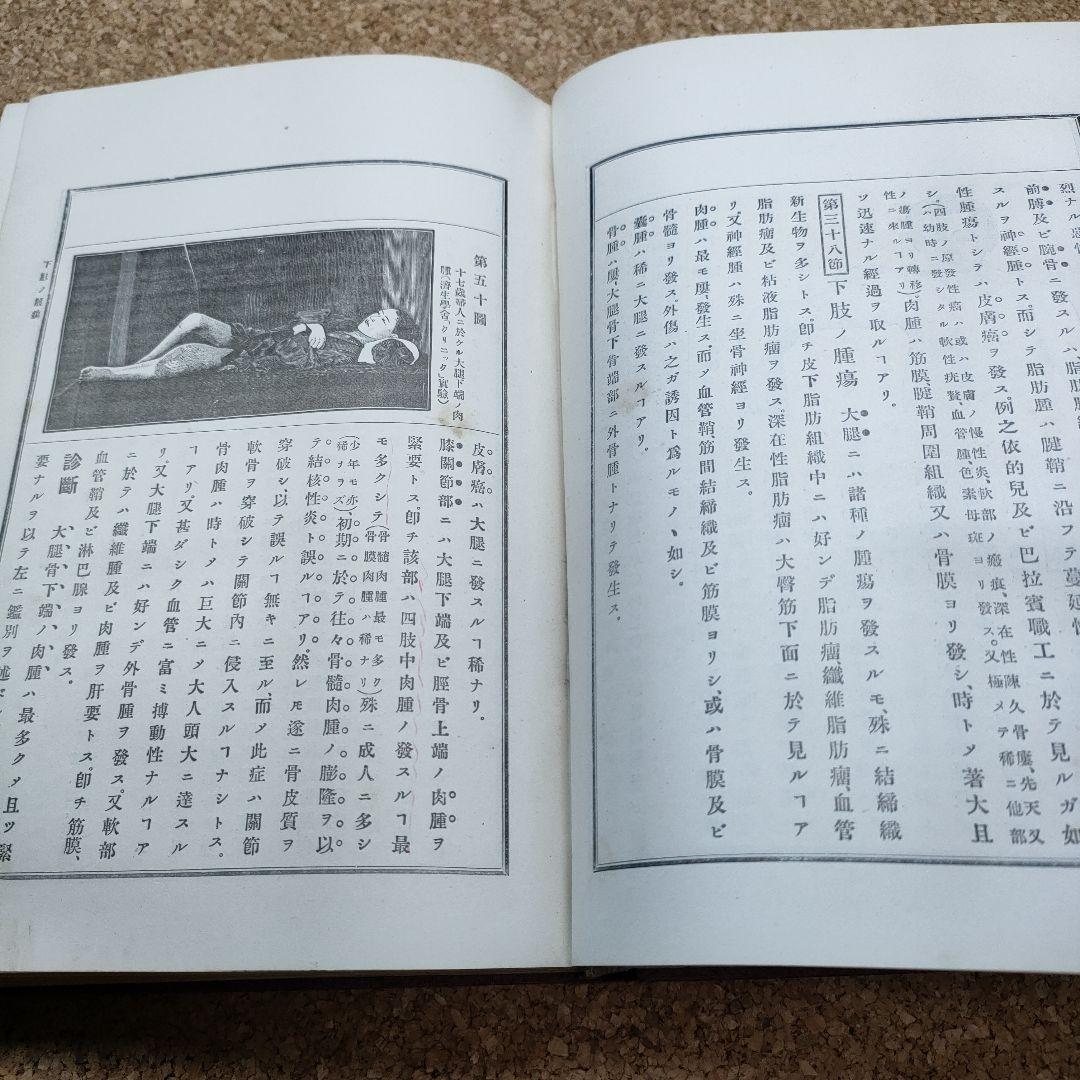 前膊及ビ腕骨ニ發スルハ脂肪腫
スルヲ神經腫トス。而シテ脂肪腫ハ腱鞘ニ沿フテ蔓延
性腫瘍トシテハ皮膚癌ヲ發ス。例之依的兒及ビ巴拉賓職工ニ於テ見ルガ如
シ。(四肢ノ原發性癌ハ或ハ皮膚ノ慢性炎、軟部ノ瘢痕、深在性陳久骨瘻、先天又
ハ幼時ニ發シタル軟性疣贅、血管腫、色素母斑ヨリ發ス又極メテ稀ニ他部
ノ癌腫ヨリ轉移
性ニ來ルヿアリ)。肉腫ハ筋膜、腱鞘周圍組織又ハ骨膜ヨリ發シ、時トメ著大且
ツ迅速ナル經過ヲ取ルヿアリ。
第三十八節 下肢ノ腫瘍 大腿ニハ諸種ノ腫瘍ヲ發スルモ、殊ニ結締織
新生物ヲ多シトス。卽チ皮下脂肪組織中ニハ好ンデ脂肪瘤、纖維脂肪瘤、血管
脂肪瘤及ビ粘液脂肪瘤ヲ發ス。深在性脂肪瘤ハ大臀筋下面ニ於テ見ルヿア
リ、又神經腫ハ殊ニ坐骨神經ヨリ發生ス。
肉腫ハ最モ屢〻發生ス、而メ血管鞘筋間結締織及ビ筋膜ヨリシ、或ハ骨膜及ビ
骨髓ヨリ發ス。外傷ハ之ガ誘因ト爲ルモノヽ如シ。
囊腫ハ稀ニ大腿ニ發スルヿアリ。
骨腫ハ屢〻大腿骨下骨端部ニ外骨腫トナリテ發生ス。
第五十圖
十七歲婦人ニ於ケル大腿下端ノ肉
腫(濟生學舍「クリニック」實驗)
下肢ノ腫瘍
皮膚癌ハ大腿ニ發スルヿ稀ナリ。
膝關節部ニハ大腿下端及ビ脛骨上端ノ肉腫ヲ
緊要トス。卽チ該部ハ四肢中肉腫ノ發スルヿ最
モ多クシテ(骨髓肉腫最モ多ク
骨膜肉腫ハ稀ナリ)殊ニ成人ニ多シ
(少年モ亦
稀ヲラズ)初期ニ於テ往々骨髓肉腫ノ膨隆ヲ以
テ結核性炎ト誤ルヿアリ。然レモ遂ニ骨皮質ヲ
穿破シ、以テ誤ルヿ無キニ至ル、而メ此症ハ關節
軟骨ヲ穿破シテ關節內ニ侵入スルヿナシトス。
骨肉腫ハ時トメハ巨大ニメ大人頭大ニ達スル
ヿアリ、又甚ダシク血管ニ富ミ搏動性ナルヿア
リ。又大腿下端ニハ好ンデ外骨腫ヲ發ス。又軟部
ニ於テハ纖維腫及ビ肉腫ヲ肝要トス。卽チ筋膜、
血管鞘及ビ淋巴腺ヨリ發ス。
診斷 大腿骨下端ノ肉腫ハ最多クメ且ツ緊
要ナルヲ以テ左ニ鑑別ヲ述